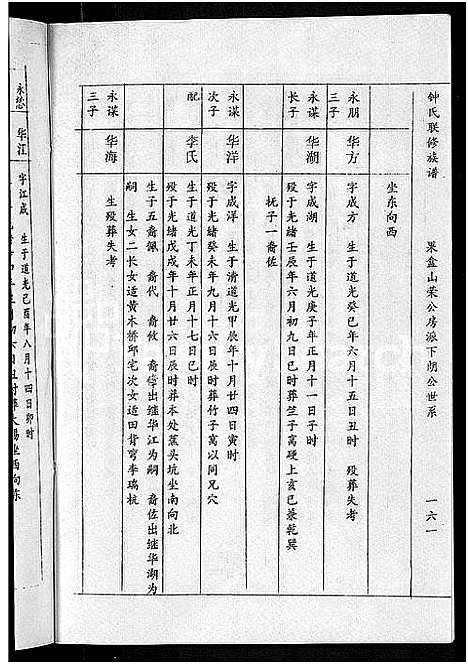 钟氏联修族谱
果盒山荣公房派下朗公世系
一六一
坐东向西
永朋
三子
华方
字成方 生于道光癸巳年六月十五日丑时 殁葬失考
永谋
长子
华湖
字成湖 生于道光庚子年正月十一日子时
殁于光绪壬辰年六月初九日辰时葬竺子窝硬上亥巳兼乾巽
抚子一裔佐
永谋
次子
华洋
字成洋 生于清道光甲辰年十月廿四日寅时
殁于光绪癸未年九月十六日辰时葬竹子窝以同兄穴
配
李氏
生于道光丁未年正月十七日巳时
殁于光绪戊戌年十月廿六日辰时葬本处蕉头坑坐南向北
生子五裔佩 裔代 裔攸 裔 出继华江为嗣 裔佐出继华湖为
嗣 生女二长女适黄木桥邱宅次女适田背窝李瑞杭
永谋
三子
华海
生殁葬失考
永愁
华江
字江成 生于道光己酉年八月十四日卯时